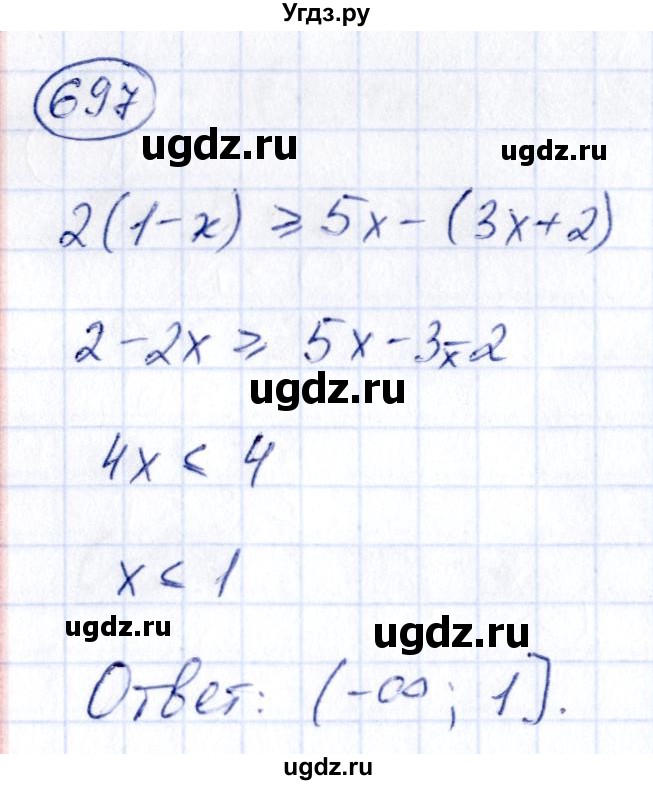 Угдз.ру
697
ugdz.ru ugdz.ru
2(1-x) ⩾ 5x-(3x+2)
2-2x ⩾ 5x-3x-2
ugdz.ru
4x ⩽ 4
x ⩽ 1
ugdz.ru ugdz.ru
Ответ: (-∞; 1].
ugdz.ru